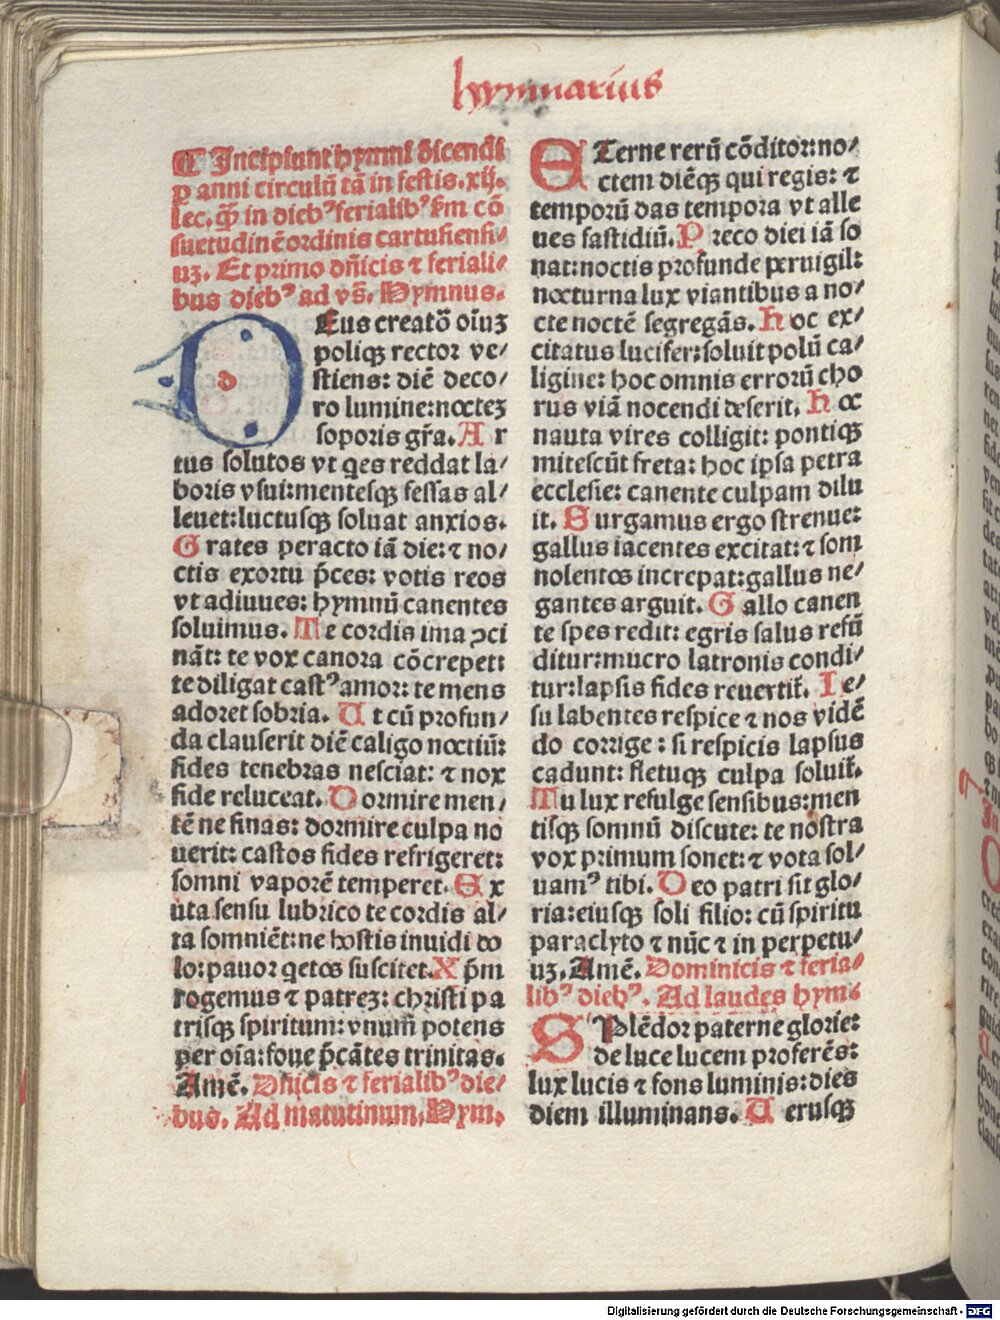 hymnarius
¶ Incipiunt hymni dicendi
ꝑ anni circulū tā in festis .xij.
lec. qꝫ in diebꝰ ferialibꝰ ẜm cō
suetudinē ordinis cartusiensi⸗
uꝫ. Et primo dñicis ⁊ feriali⸗
bus diebꝰ ad vs̄. Hymnus.
DEus creatō oīuꝫ
poliqꝫ rector ve⸗
stiens: diē deco⸗
ro lumine: noctēꝫ
soporis gr̄a. A r
tus solutos vt q̇es reddat la⸗
boris vsui: mentesqꝫ fessas al⸗
leuet: luctusqꝫ soluat anxios.
G rates peracto iā die: ⁊ no⸗
ctis exortu p̄ces: votis reos
vt adiuues: hymnū canentes
soluimus. T e cordis ima ꝯci
nāt: te vox canora cōcrepet:
te diligat castꝰ amor: te mens
adoret sobria. U t cū profun⸗
da clauserit diē caligo noctiū:
fides tenebras nesciat: ⁊ nox
fide reluceat. D ormire men⸗
tē ne sinas: dormire culpa no
uerit: castos fides refrigeret:
somni vaporē temperet. E x
uta sensu lubrico te cordis al⸗
ta somniēt: ne hostis inuidi do
lo: pauor q̇etos suscitet. X p̄m
rogemus ⁊ patreꝫ: christi pa
trisqꝫ spiritum: vnum potens
per oīa: foue p̄cātes trinitas.
Amē. Dñicis ⁊ ferialibꝰ die⸗
bus. Ad matutinum, Hym.
ETerne rerū cōditor: no⸗
ctem diēqꝫ qui regis: ⁊
temporū das tempora vt alle
ues fastidiū. P reco diei iā so
nat: noctis profunde peruigil:
nocturna lux viantibus a no⸗
cte noctē segregās. H oc ex⸗
citatus lucifer: soluit polū ca⸗
ligine: hoc omnis errorū cho
rus viā nocendi deserit. H oc
nauta vires colligit: pontiqꝫ
mitescūt freta: hoc ipsa petra
ecclesie: canente culpam dilu
it. S urgamus ergo strenue:
gallus iacentes excitat: ⁊ som
nolentos increpat: gallus ne⸗
gantes arguit. G allo canen
te spes redit: egris salus refū
ditur: mucro latronis condi⸗
tur: lapsis fides reuertit᷑. I e⸗
su labentes respice ⁊ nos vidē
do corrige: si respicis lapsus
cadunt: fletuqꝫ culpa soluit᷑.
T u lux refulge sensibus: men
tisqꝫ somnū discute: te nostra
vox primum sonet: ⁊ vota sol⸗
uamꝰ tibi. D eo patri sit glo⸗
ria: eiusqꝫ soli filio: cū spiritu
paraclyto ⁊ nūc ⁊ in perpetu⸗
uꝫ. Amē. Dominicis ⁊ feria⸗
libꝰ diebꝰ. Ad laudes hym:
SPlēdor paterne glorie:
de luce lucem proferēs:
lux lucis ⁊ fons luminis: dies
diem illuminans. U erusqꝫ
Digitalisierung gefördert durch die Deutsche Forschungsgemeinschaft - DFG